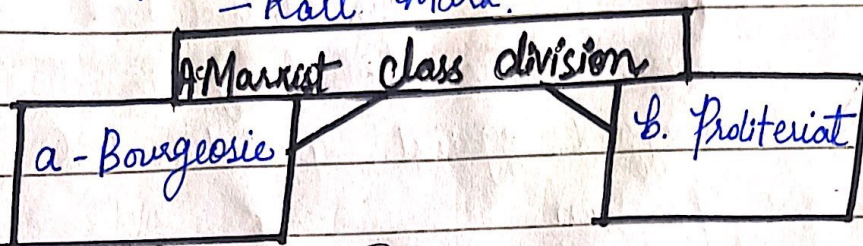 - Karl Marx.
A: Marxist class division
a - Bourgeosie
b. Proliteriat